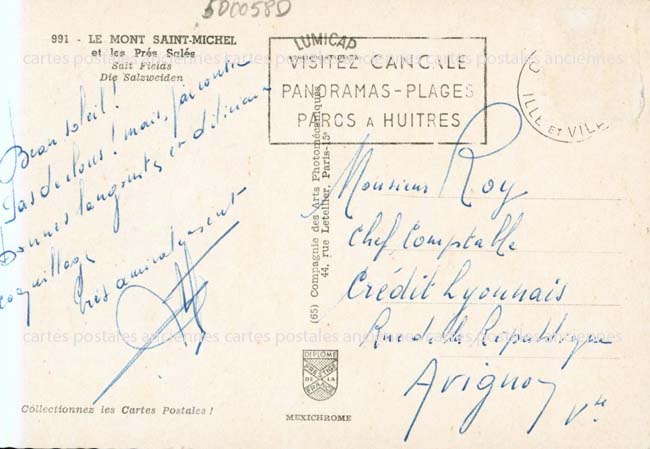 5D0058D
991 - LE MONT SAINT-MICHEL
et les Prés Salés
Salt Fields
Die Salzweiden
LUMICAP
VISITEZ CANCALE
PANORAMAS-PLAGES
PARCS A HUITRES
ILLE ET VIL
Beau soleil !
Pas de clous ! mais, j'ai
bonnes langoustes et délicieux
coquillages
Très amicalement
(65) Compagnie des Arts Photomécaniques
44, rue Letellier, Paris-15e
Monsieur Roy
Chef Comptable
Crédit Lyonnais
Rue de la République
Avignon
Vse
DIPLOME
PRESTIGE
DE LA
FRANCE
Collectionnez les Cartes Postales !
MEXICHROME
cartes postales anciennes cartes postales anciennes cartes postales anciennes
cartes postales anciennes cartes postales anciennes cartes postales anciennes